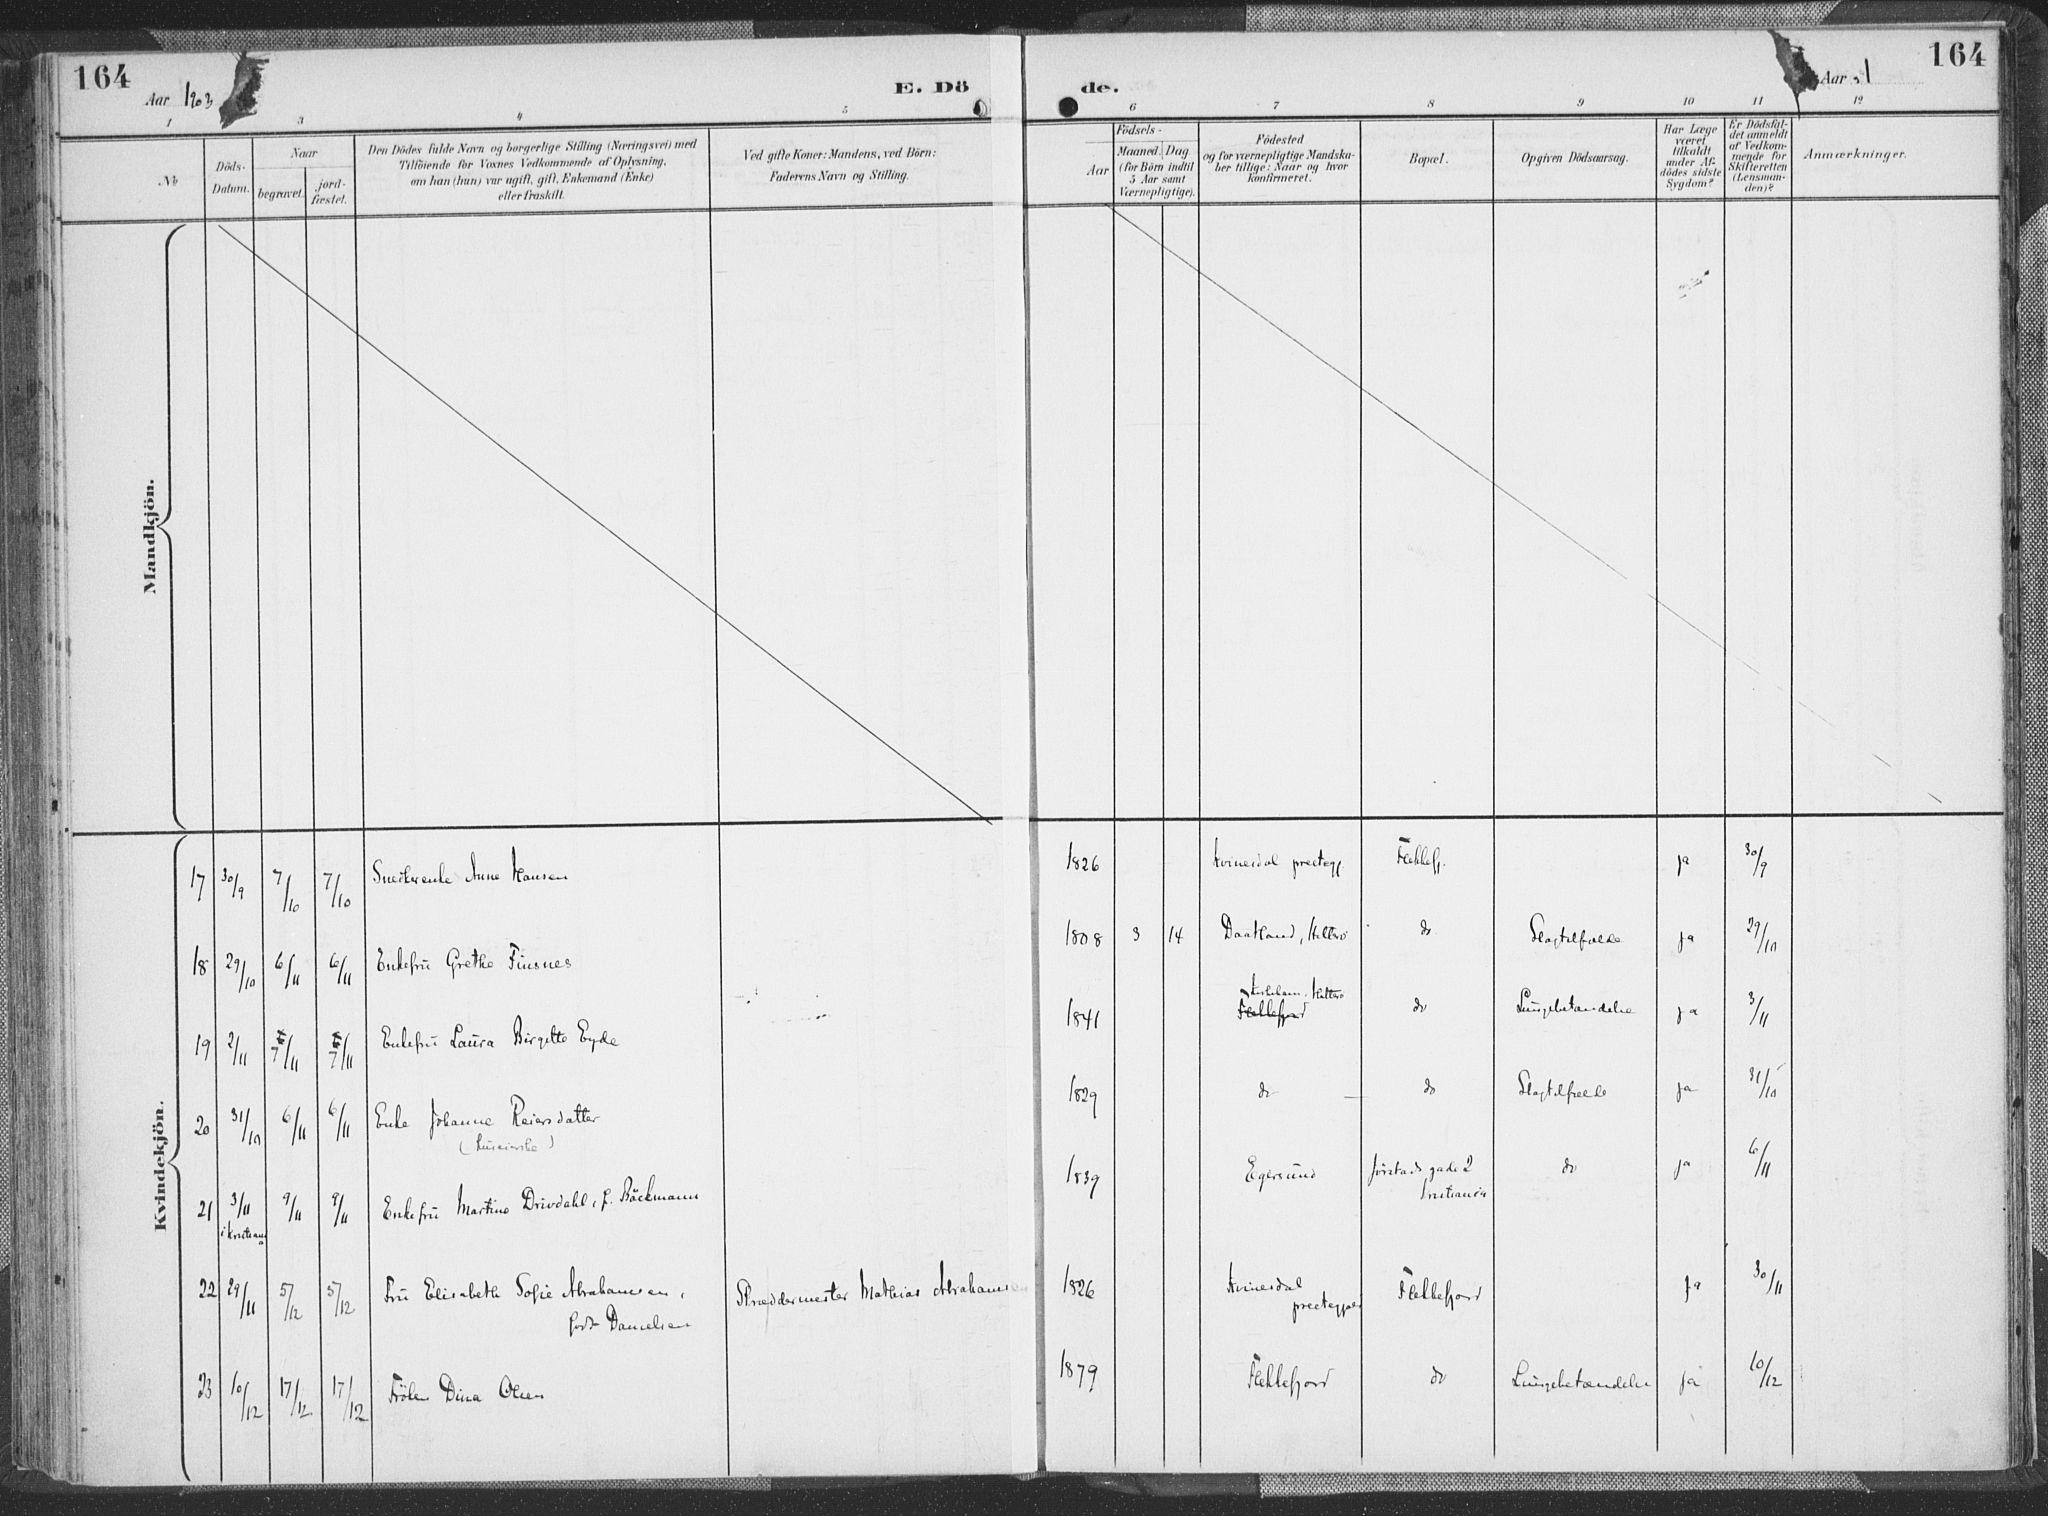 164
Aar 1903
E. Dö
de.
Aar
164
1
3
4
5
6
7
8
9
10
11
12
No
Döds-
Datum.
Naar
begravet.
jord-
fæstet.
Den Dödes fulde Navn og borgerlige Stilling (Næringsvei) med
Tilföiende for Voxnes Vedkommende af Oplysning,
om han (hun) var ugift, gift, Enkemand (Enke)
eller fraskilt.
Ved gifte Koner: Mandens, ved Börn:
Faderens Navn og Stilling.
Födsels-
Aar
Maaned.
Dag
(for Börn indtil
5 Aar samt
Værnepligtige).
Födested
og for værnepligtige Mandska-
ber tillige: Naar og hvor
konfirmeret.
Bopæl.
Opgiven Dödsaarsag.
Har Læge
været
tilkaldt
under Af-
dödes sidste
Sygdom?
Er Dödsfal-
det anmeldt
af Vedkom-
mende for
Skifteretten
(Lensman-
den)?
Anmærkninger.
Mandkjön.
Kvindekjön.
17 30/9 7/10 7/10 Snedkerenke Anne Hansen 1826 Kvinesdal prestegj. Flekkefj. ja 30/9
18 29/10 6/11 6/11 Enkefru Grethe Finsnes 1808 3 14 Daatland, Hitterö do Slagtilfælde ja 29/10
Hitterö
19 2/11 7/11 7/11 Enkefru Laura Birgitte Eyde 1841 Flekkefjord do Lungebetændelse ja 3/11
20 31/10 6/11 6/11 Enke Johanne Reiersdatter 1829 do do Slagtilfælde ja 31/10
21 3/11 9/11 9/11 Enkefru Martine Drivdahl, f. Bäckmann 1839 Egersund gade 2 do ja 6/11
i Kristiania
Kristiania
22 29/11 5/12 5/12 Fru Elisabeth Sofie Abrahamsen, Skræddermester Mathias Abrahamsen 1826 Kvinesdal Flekkefjord ja 30/11
född Danielsen
prestegjæld
23 10/12 17/12 17/12 Fröken Dina Olsen 1879 Flekkefjord do Lungebetændelse ja 10/12